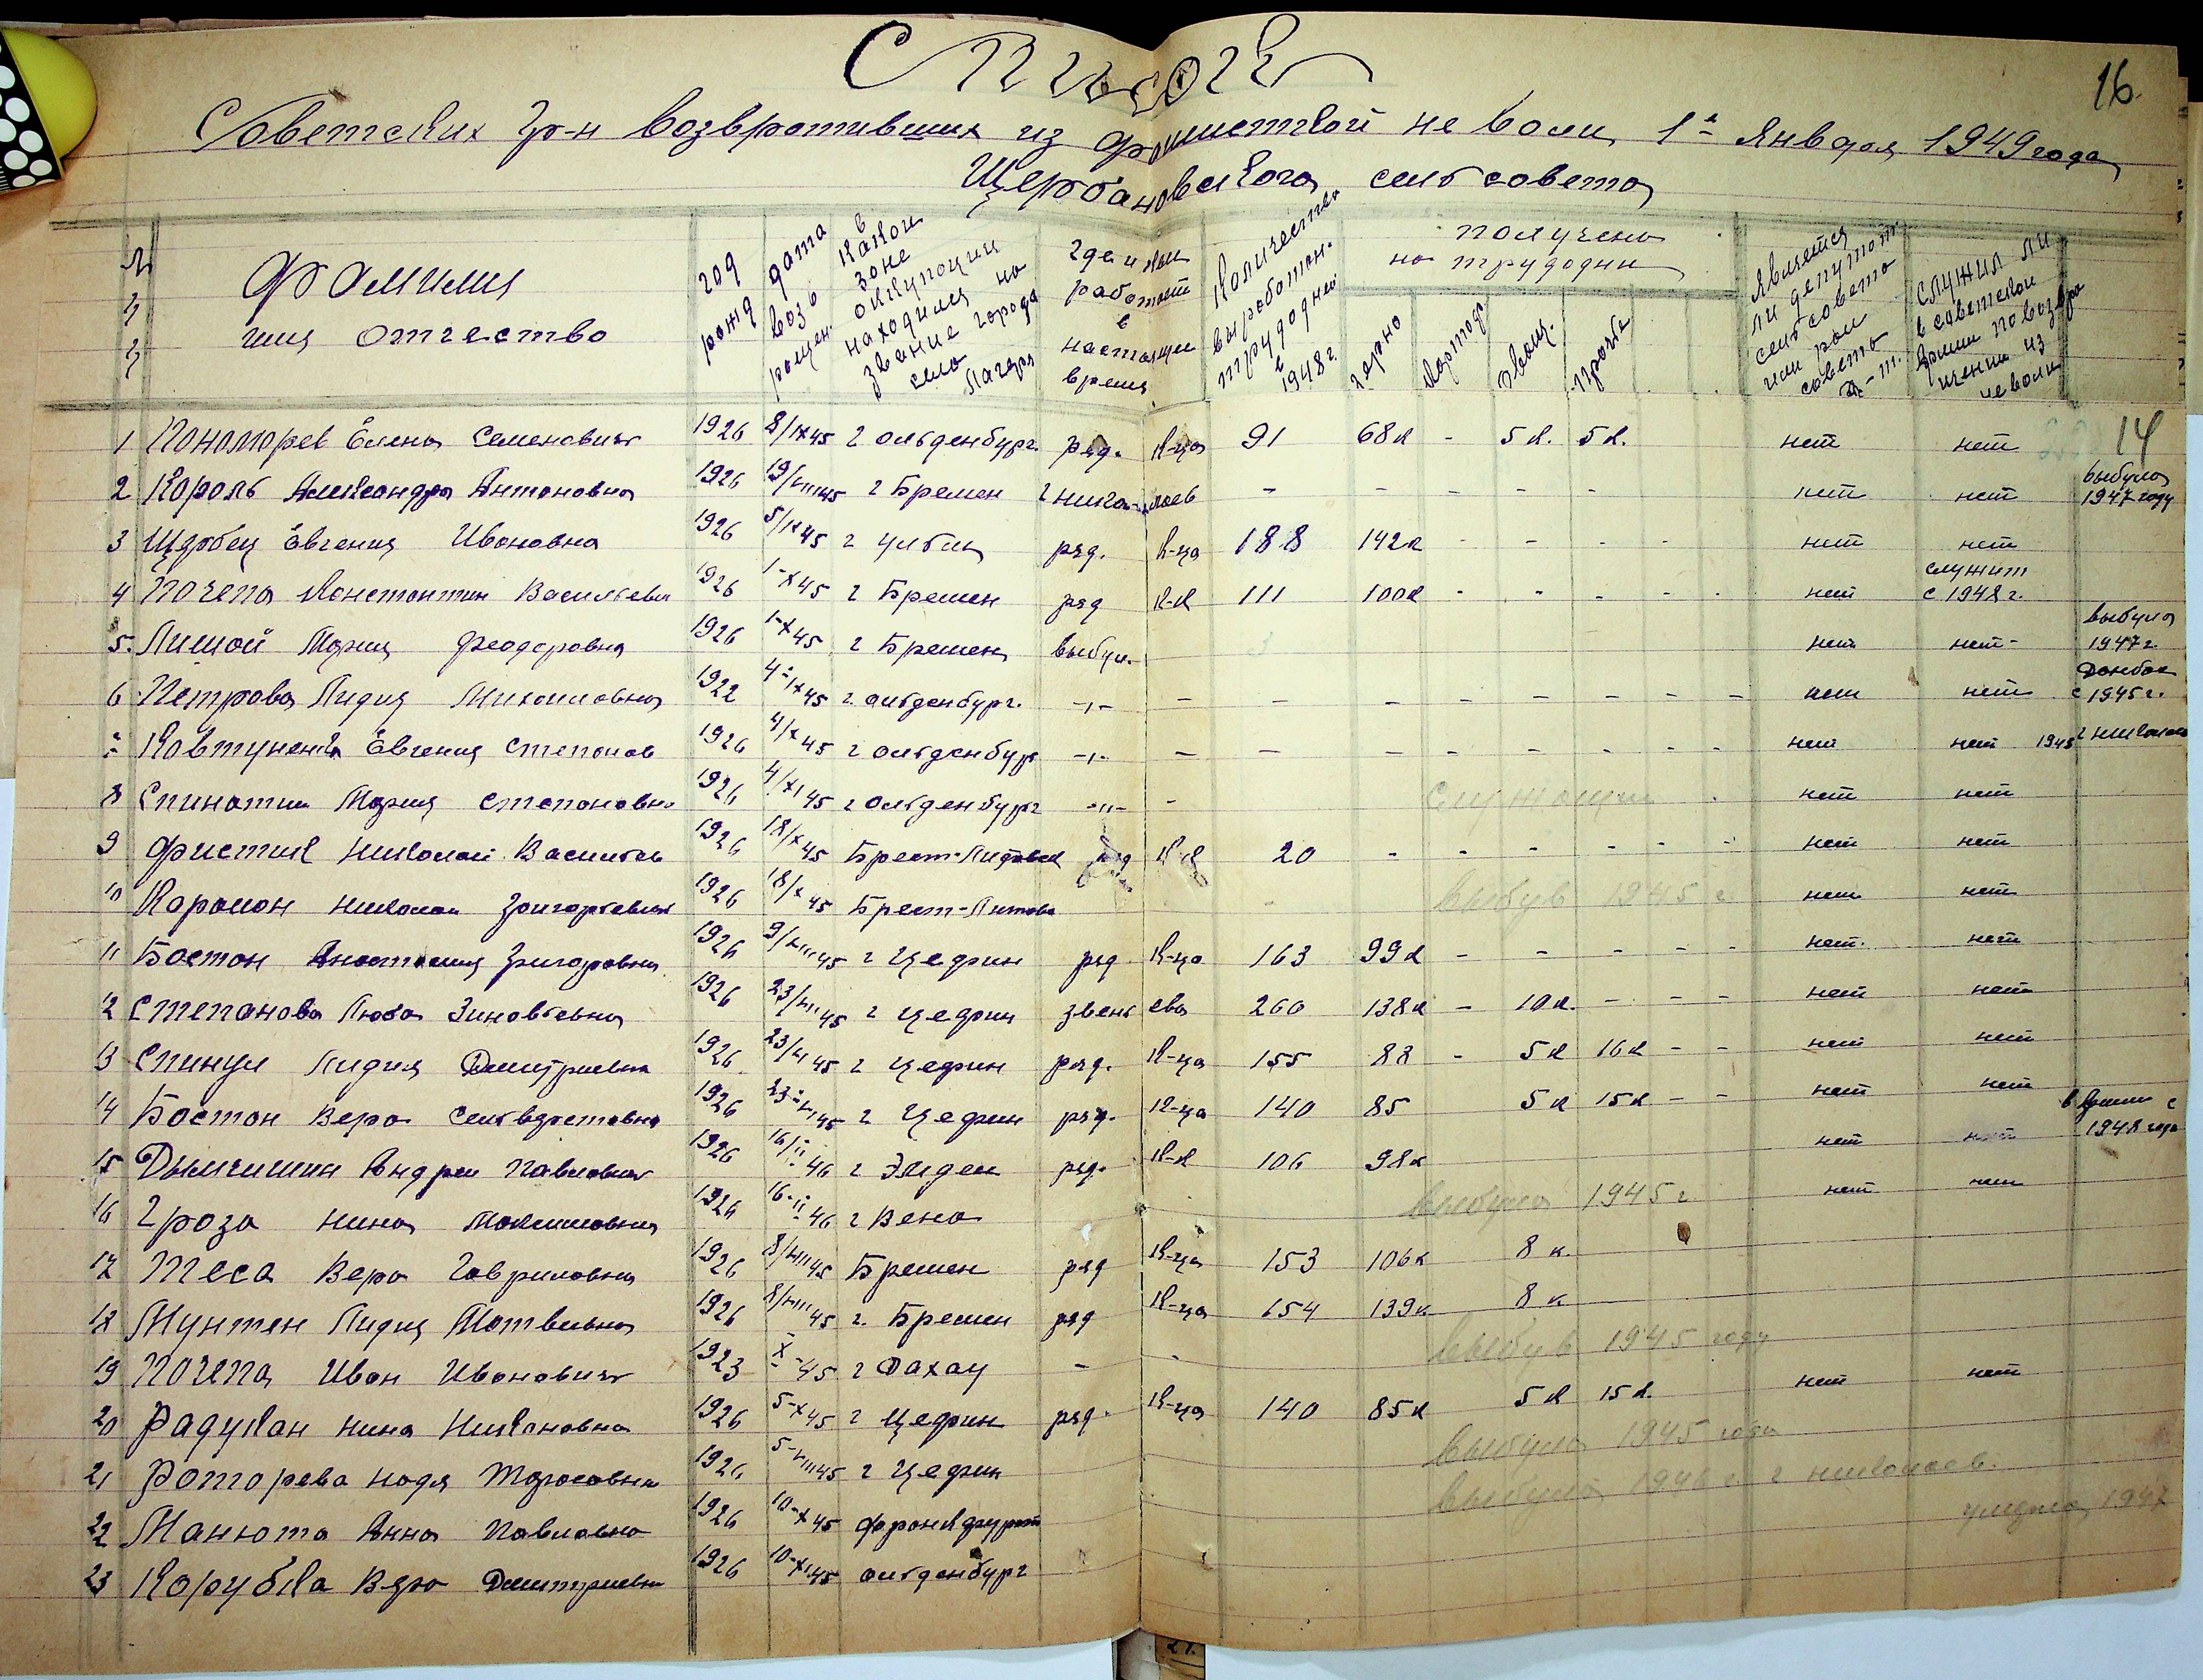 Список
16.
Советских гр-н возвротивших из фошисткой не воли 1е Января 1949 года
Щербановского сельсовета
Фомилия
имя отчество
год рожд
дата возв ращен.
в какои зоне оккупоции находился на звание города село лагеря
где и кем работает в настоящее время
Количество выработан. трудодней в 1948 г.
получено на трудодни
зерно
картоф
овощ.
Является ли депутат сельсовета или рай совета д-т.
служил ли в советской армии по возвра щении из неволи
1 Пономорев Елена Семеновна 1926 8/IX 45 г ольденбург. ряд. к-ца 91 68к - 5к. 5к. нет нет 14
2 Король Александра Антоновна 1926 19/VIII 45 г Бремен г николаев - - - - - - нет нет выбула 1947 году
3 Щербец Евгения Ивоновна 1926 5/IX 45 г ряд. к-ца 188 142к - - - - нет нет
4 Почепа Констонтин Васильевич 1926 1-X 45 г Бремен ряд к-к 111 100к - - - - нет служит с 1948 г.
5. Лишой Мария Феодоровна 1926 1-X 45 г Бремен выбул. нет нет- выбула 1947 г.
6 Петрова Лидия Михоиловна 1922 4-IX 45 г. ольденбург. -"- - - - - - - - - нет нет Донбас с 1945 г.
Ковтуненко Евгения Степонов 1926 4/X 45 г ольденбург -"- - - - - - - - - нет нет 1945 г николаев
8 Спинотии Мария степоновно 1926 4/XI 45 г ольденбург -"- - служощая нет нет
9 Фистик Николои Васильев 1926 18/X 45 Брест-Литовск ряд к-к 20 - - - - - - нет нет
10 Каромон николаи Григорьевич 1926 18/X 45 Брест-Литовс выбув 1945 г нет нет
11 Бостон Аностосия Григоровна 1926 9/VIII 45 г Цефрин ряд к-ца 163 99к - - - - - нет. нет
12 Степанова Люба Зиновьевна 1926 23/VIII 45 г Цефрин звеньева 260 138к - 10к. - - - нет нет
13 Спинул Лидия Дмитриевна 1926 23/VI 45 г Цефрин ряд. к-ца 155 88 - 5к 16к - - нет нет
14 Бостон Вера Сельвдростовна 1926 23 45 г Цефрин ряд. к-ца 140 85 5к 15к - - нет нет
15 Андрей Павлович 1926 16/II 46 г Эмден ряд. к-к 106 98к нет нет в армии с 1948 года
16 Гроза Нина Максимовна 1926 16-II 46 г Вена выбула 1945 г нет нет
17 Теса Вера Гавриловна 1926 8/VIII 45 Бремен ряд к-ца 153 106к 8 к.
18 Мунтен Лидия Мотвеевна 1926 8/VIII 45 г. Бремен ряд к-ца 154 139к 8 к
19 Почепа Ивон Ивонович 1923 X-45 г Дахау - - выбув 1945 году
20 Радукан Нина Никоновна 1926 5-X 45 г Цефрин ряд. к-ца 140 85к 5к 15к. нет нет
21 Роторева Надя Торосовна 1926 5-VIII 45 г Цефрин выбула 1945 года
22 Манюта Анна Повловно 1926 10-X 45 Фронкфурт выбула 1946 г. г николаев.
23 Корубка Вера Дмитриевна 1926 10-XI 45 ольденбург умерла 1947